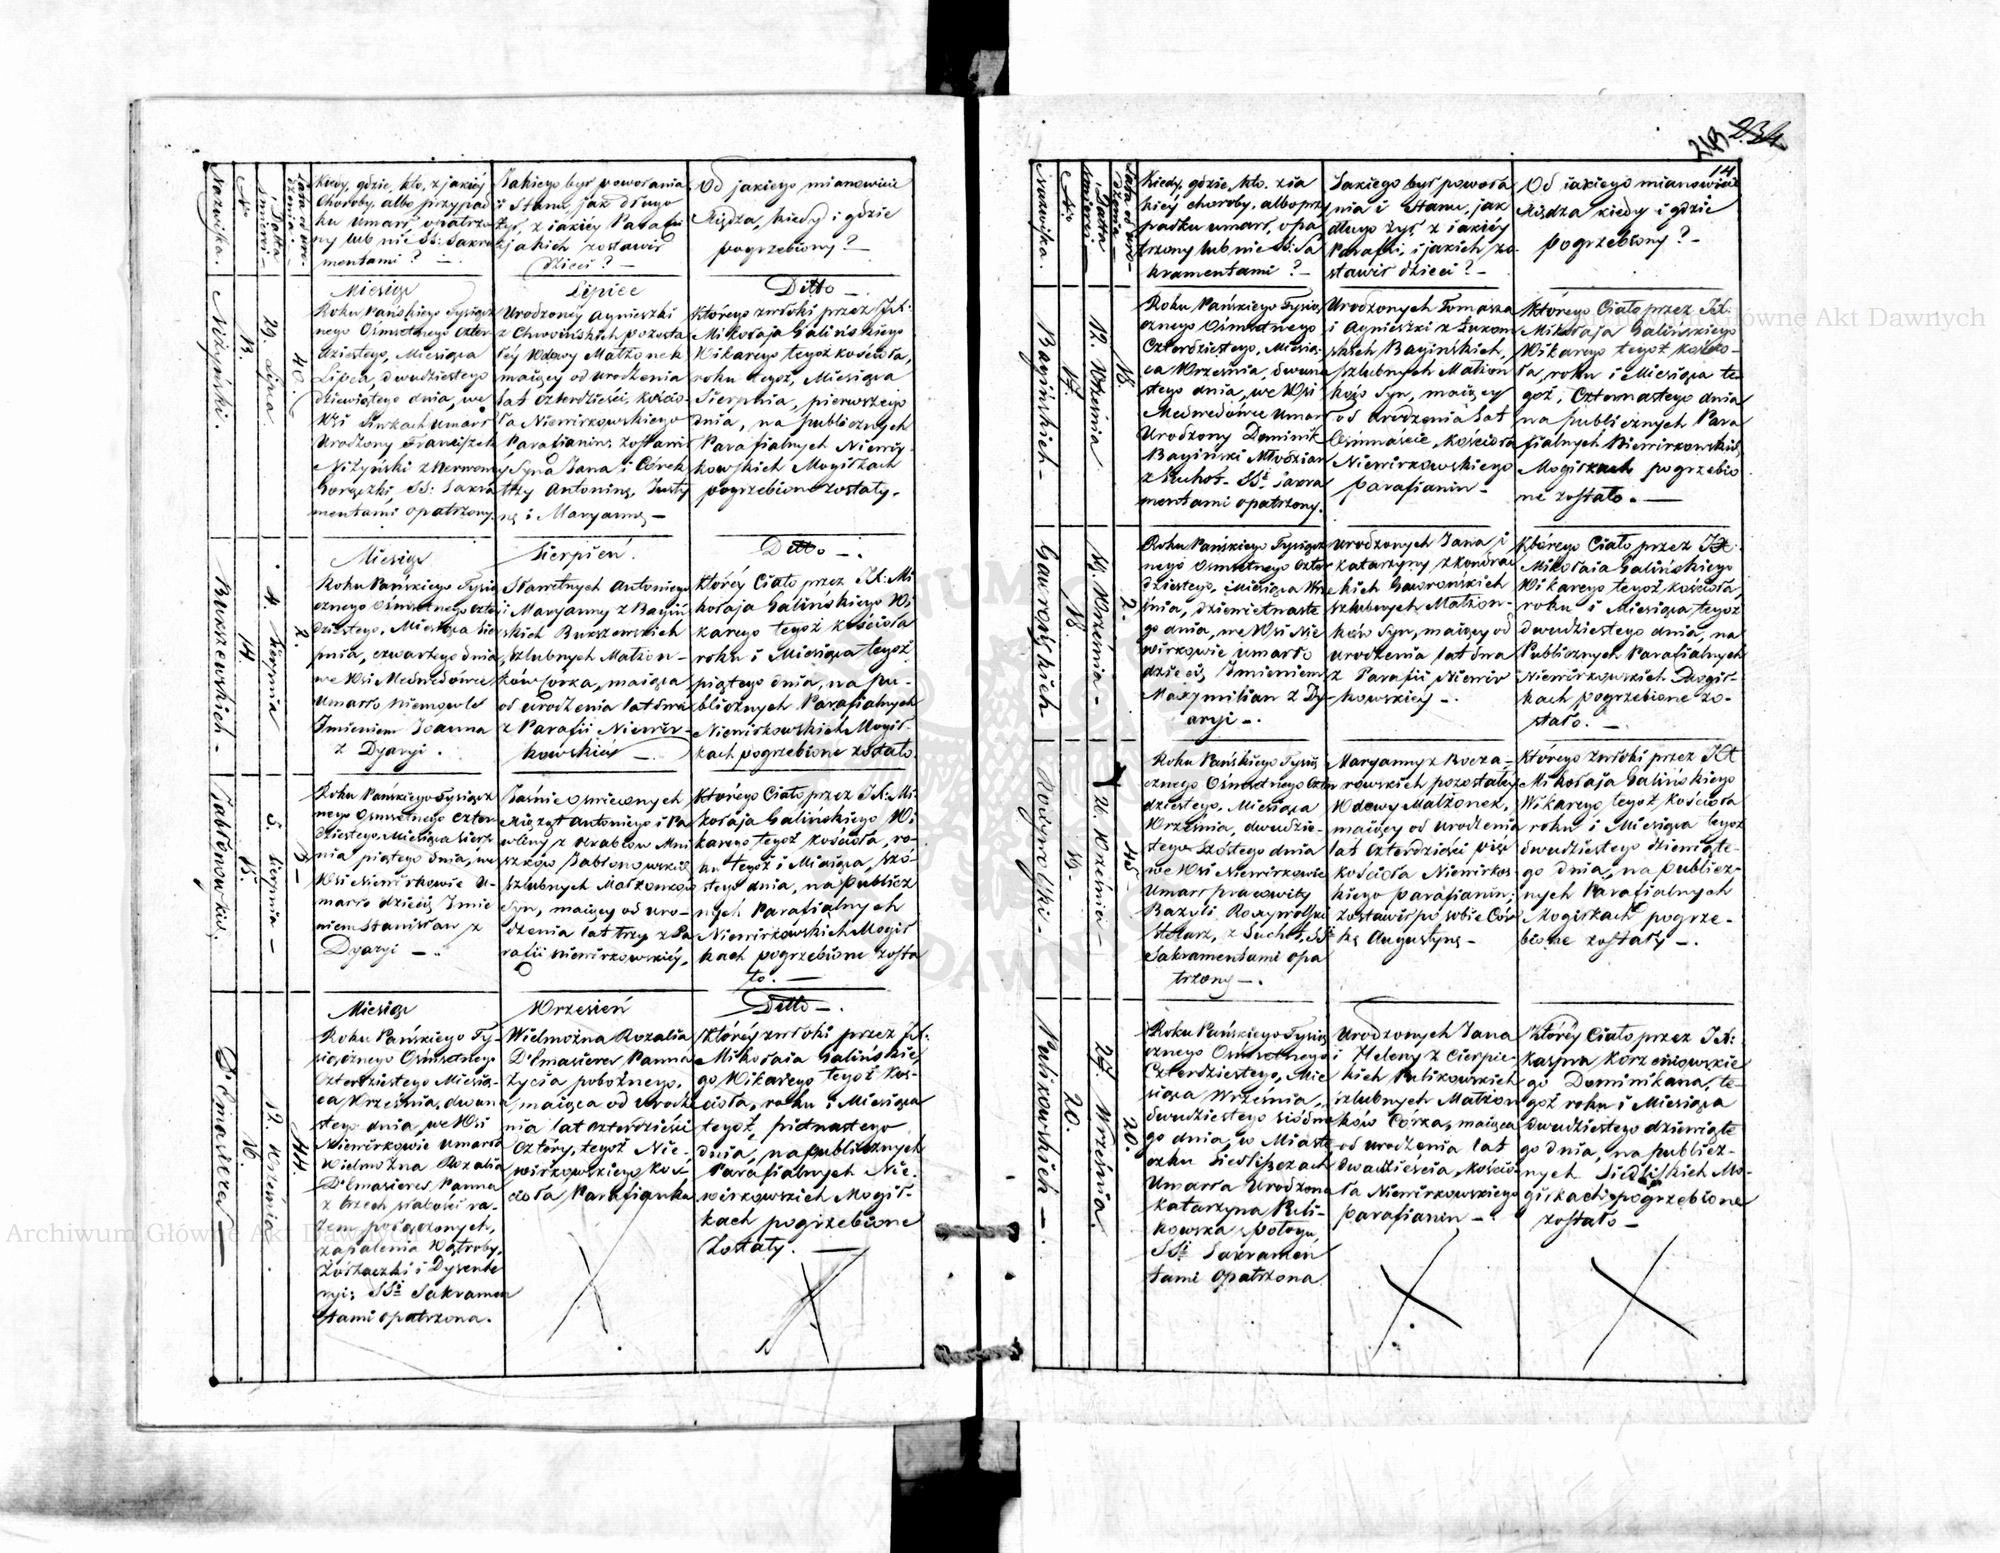 Nazwiska.
N°
Datta Śmierci.
Lata od uro-dzenia.
Kiedy, gdzie, kto, z jakiéy
Choroby, albo przypad
ku Umarł, opatrzo
ny lub nie SS: Sakra
mentami? —
Jakiego był powołania
i Stanu, jak długo
żył, z jakiéy Parafii
i jakich zostawił
dzieci? —
Od jakiego mianowicie
Xiędza, kiedy i gdzie
pogrzebiony? —
Miesiąc
Lipiec
Ditto —.
Niżyński.
13.
29. Lipca
40.
Roku Pańskiego Tysiącz
nego Ośmsetnego Czter
dziestego, Miesiąca
Lipca, dwudziestego
dziewiątego dnia, we
Wsi Sinkach Umarł
Urodzony Franciszek
Niżyński z Nerwowéy
Gorączki, SS: Sakra
mentami opatrzony.
Urodzonéy Agnieszki
z Chrośińskich pozosta
łéy Wdowy Małżonek
maiący od urodzenia
lat Czterdzieści, kościo
ła Niewirkowskiego
Parafianin; zostawił
Syna Jana i Córek
trzy Antoninę, Justy
nę i Maryannę —
Którego zwłoki przez JX:
Mikołaja Galińskiego
Wikarego tegoż kościoła,
roku tegoż, Miesiąca
Sierpnia, pierwszego
dnia, na publicznych
Parafialnych Niewir-
kowskich Mogiłkach
pogrzebione zostały.
Miesiąc
Sierpień.
Ditto —.
Burszewskich —
14.
4. Sierpnia
2.
Roku Pańskiego Tysią
cznego Ośmsetnego Czter
dziestego, Miesiąca Sier
pnia, czwartego dnia
we Wsi Medwedówce
Umarło Niemowle
Imieniem Joanna
z Dyaryi.
Sławetnych Antoniego
i Maryanny z Bagiń
skich Burszewskich
szlubnych Małżon-
ków Córka, maiąca
od urodzenia lat dwa
z Parafii Niewir-
kowskiéy —.
Któréy Ciało przez JX: Mi
kołaja Galińskiego Wi
karego tegoż kościoła
roku i Miesiąca tegoż
piątego dnia, na pu-
blicznych Parafialnych
Niewirkowskich Mogił
kach pogrzebione zostało.
Jabłonowskich.
15.
5. Sierpnia —
3 —
Roku Pańskiego Tysiącz
nego Ośmsetnego Czter
dziestego, Miesiąca Sierp
nia piątego dnia, we
Wsi Niewirkowie U-
marło dziecię Imie
niem Stanisław z
Dyaryi —.
Jaśnie oświeconych
Xiążąt Antoniego i Pa
wliny z Hrabiów Mni
szków Jabłonowskich
szlubnych Małżonków
Syn, maiący od uro-
dzenia lat trzy z Pa
rafii Niewirkowskiéy.
Którego Ciało przez JX: Mi
kołaja Galińskiego Wi
karego tegoż kościoła, ro-
ku tegoż i Miesiąca, szó-
stego dnia, na publicz
nych Parafialnych
Niewirkowskich Mogił
kach pogrzebione zosta
ło. —
Miesiąc
Wrzesień
Ditto —.
D'Emasieres —
16.
12. Września.
44.
Roku Pańskiego Ty-
siącznego Ośmsetnego
Czterdziestego Miesią-
ca Września, dwuna
stego dnia, we Wsi
Niewirkowie Umarła
Wielmożna Rozalia
D'Emasieres Panna
z trzech słabości ra-
zem połączonych,
zapalenia Wątroby,
Żółtaczki i Dysente
ryi; SS: Sakramen
tami opatrzona.
Wielmożna Rozalia
D'Emasieres Panna
Życia pobożnego,
maiąca od urodze
nia lat czterdzieści
Cztéry, tegoż Nie-
wirkowskiego koś-
cioła Parafianka
Któréy zwłoki przez JX:
Mikołaia Galińskie
go Wikarego tegoż koś-
cioła, roku i Miesiąca
tegoż, pietnastego
dnia, na publicznych
Parafialnych Nie-
wirkowskich Mogił-
kach pogrzebione
Zostały. —
14
Nazwiska.
N°
Datta Śmierci.
Lata od uro-dzenia —
Kiedy, gdzie, kto, z ia
kiéy choroby, albo przy
padku umarł, opa
trzony lub nie SS: Sa
kramentami? —
Jakiego był powoła
nia i Stanu, jak
długo żył, z iakiéy
Parafii, i jakich zo
stawił dzieci? —
Od iakiego mianowicie
Xiędza kiedy i gdzie
pogrzebiony? —
Bagińskich —
17.
12. Września
18.
Roku Pańskiego Tysią
cznego Ośmsetnego
Czterdziestego, Miesią-
ca Września, dwuna
stego dnia, we Wsi
Medwedówce Umarł
Urodzony Dominik
Bagiński Młodzian
z Suchot. SS: Sakra
mentami opatrzony.
Urodzonych Tomasza
i Agnieszki z Żukow
skich Bagińskich,
szlubnych Małżon
ków Syn, maiący
od urodzenia lat
Ośmnaście, kościoła
Niewirkowskiego
parafianin —
Którego Ciało przez JX:
Mikołaja Galińskiego
Wikarego tegoż kościo-
ła, roku i Miesiąca te-
goż, Czternastego dnia
na publicznych Para
fialnych Niewirkowskich
Mogiłkach pogrzebio
ne zostało. —
Gawrońskich —
18.
19. Września —
2.
Roku Pańskiego Tysiącz
nego Ośmsetnego Czter
dziestego, Miesiąca Wrze
śnia, dziewietnaste
go dnia, we Wsi Nie
wirkowie umarło
dziecię, Imieniem
Maxymilian z Dy-
aryi —.
Urodzonych Jana i
Katarzyny z Kondrac
kich Gawrońskich
szlubnych Małżon-
ków Syn, maiący od
urodzenia lat dwa
z Parafii Niewir
kowskiéy —.
Którego Ciało przez JX:
Mikołaia Galińskiego
Wikarego tegoż kościoła,
roku i Miesiąca tegoż
dwudziestego dnia, na
Publicznych Parafialnych
Niewirkowskich Mogił-
kach pogrzebione zo-
stało. —
19.
26. Września —
45 —
Roku Pańskiego Tysią
cznego Ośmsetnego Czter
dziestego, Miesiąca
Września, dwudzie-
stego Szóstego dnia
we Wsi Niewirkowie
Umarł pracowity
Bazyli
Stolarz, z Suchot, SS:
Sakramentami opa
trzony —.
Maryanny z
rowskich pozostałéy
Wdowy Małżonek,
maiący od urodzenia
lat Czterdzieści pięć
kościoła Niewirkow-
skiego parafianin;
zostawił po sobie Cór
kę Augustynę —
Którego zwłoki przez JX
Mikołaja Galińskiego
Wikarego tegoż kościoła
roku i Miesiąca tegoż
dwudziestego dziewiąte-
go dnia, na publicz-
nych Parafialnych
Mogiłkach pogrze-
bione zostały —.
Pulikowskich —.
20.
27 Września.
20.
Roku Pańskiego Tysią
cznego Ośmsetnego
Czterdziestego, Mie
siąca Września,
dwudziestego siódme
go dnia, w Miaste
czku Siedliszczach
Umarła Urodzona
Katarzyna Puli-
kowska z połogu,
SS: Sakramen
tami Opatrzona.
Urodzonych Jana
i Heleny z Cierpic-
kich Pulikowskich
szlubnych Małżon
ków Córka, maiąca
od urodzenia lat
dwadzieścia, kościo-
ła Niewirkowskiego
parafianin —
Któréy Ciało przez JX:
Kaspra Korzeniowskie
go Dominikana, te-
goż roku i Miesiąca
dwudziestego dziewiąte
go dnia, na publicz-
nych Mo-
giłkach pogrzebione
zostało —
Archiwum Główne Akt Dawnych
Archiwum Główne Akt Dawnych